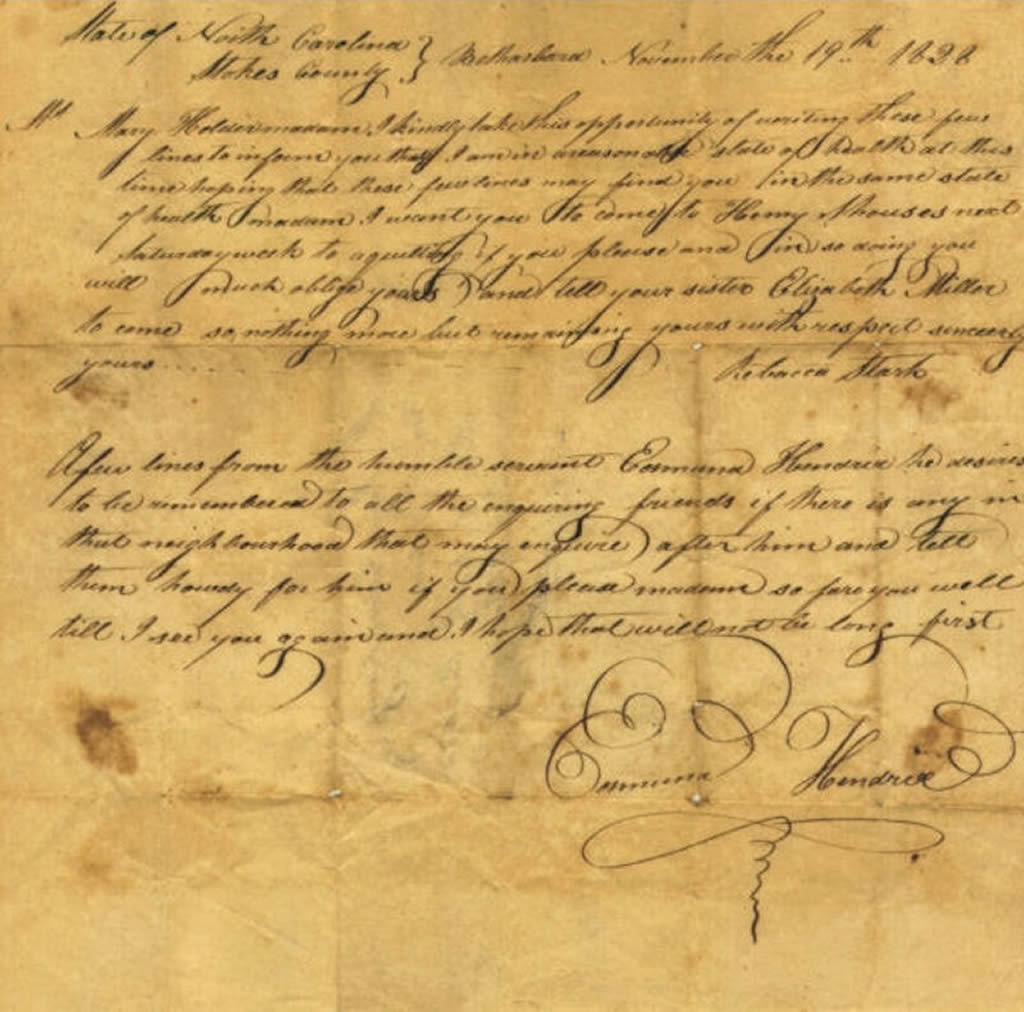 State of North Carolina }
Stokes County } Bethabara November the 19th 1828
Mrs Mary Holder madam I kindly take this opportunity of writing these few
lines to inform you that I am in a reasonable state of health at this
time hoping that these few lines may find you in the same state
of health madam I want you to come to Henry Shouses next
Saturday week to a quilting if you please and in so doing you
will much oblige yours and tell your sister Elizabeth Miller
to come so nothing more but remaining yours with respect sincerely
yours .....
Rebacca Stark
A few lines from the humble servant Edmund Hendrix he desires
to be remembered to all the enquiring friends if there is any in
that neighbourhood that may enquire after him and tell
them howdy for him if you please madam so fare you well
till I see you again and I hope that will not be long first
Edmund Hendrix